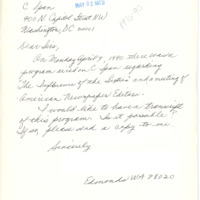 C Span
MAY 02 RECD
400 N Capitol Street NW
Washington, DC 20001
1990
Dear Sirs,
On Monday April 9, 1990 there was a
program aired on C Span regarding
The Influence of the Sixties and meeting of
American Newspaper Editors.
I would like to have a transcript
of this program. Is it possible?
If so, please send a copy to me.
Sincerely
Edmonds WA 98020